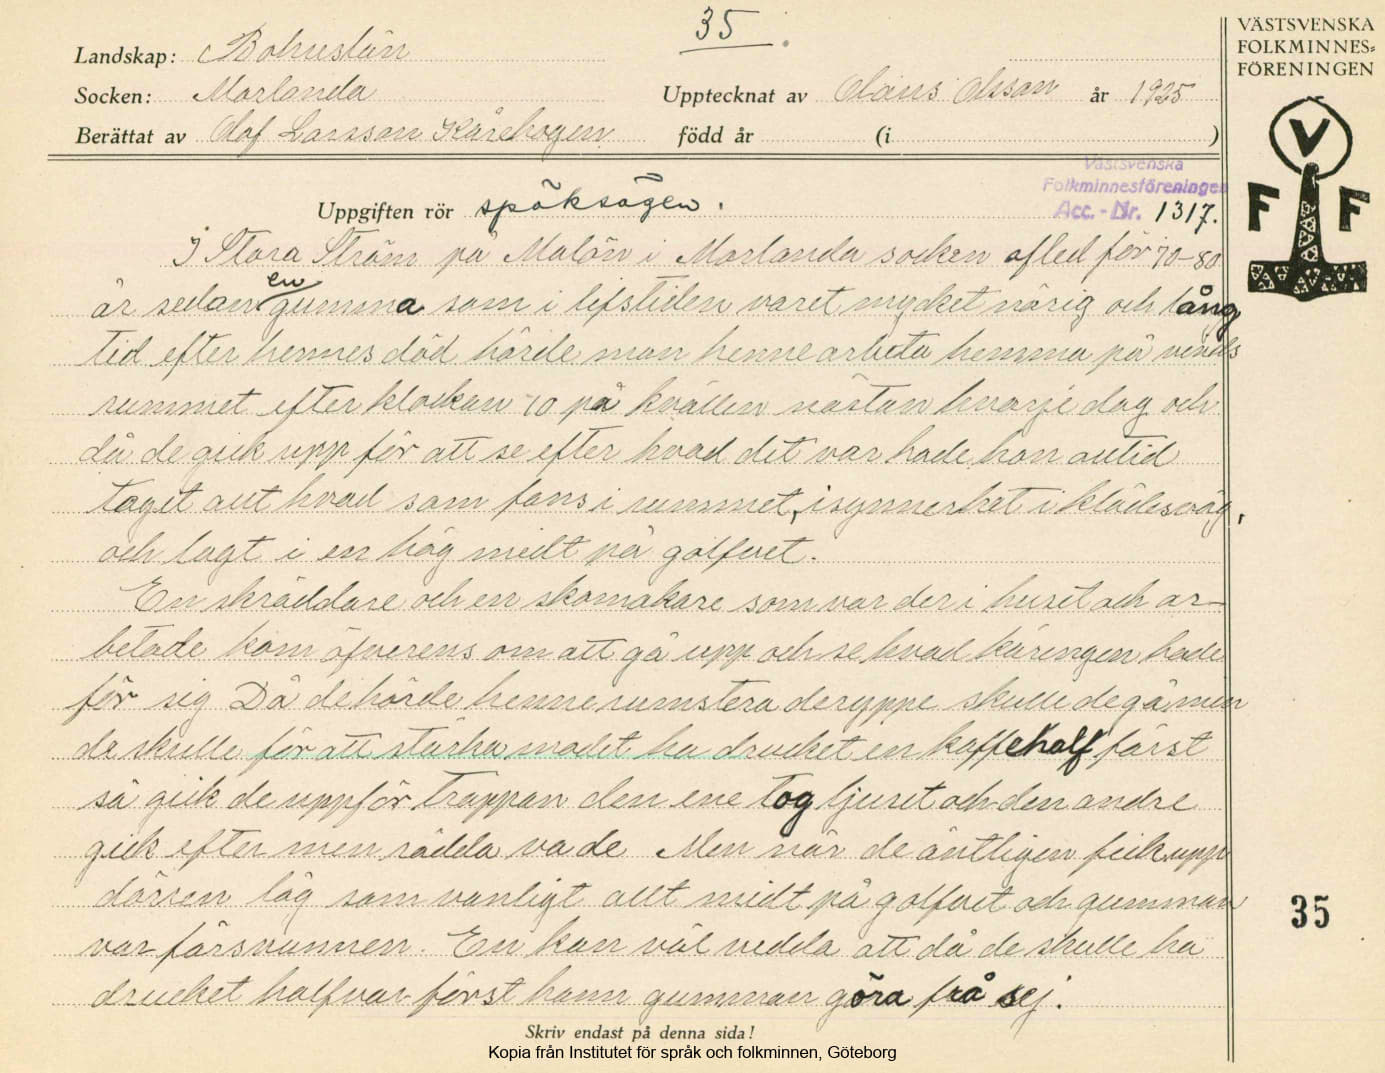 35.
VÄSTSVENSKA
FOLKMINNES=
FÖRENINGEN
Landskap: Bohuslän
Socken: Morlanda
Upptecknat av Claus Olsson år 1925
Berättat av Olof Larsson Kårehogen född år (i )
V
F F
Västsvenska
Folkminnesföreningen
Acc. - Nr. 1317.
Uppgiften rör spöksägen.
I Stora Ström på Malön i Morlanda socken afled för 70-80
år sedan en gumma som i lifstiden varet mycket närig och lång
tid efter hennes död hörde man henne arbeta hemma på vinds
rummet efter klockan 10 på kvällen nästan hvarje dag och
då de gick upp för att se efter hvad det var hade hon altid
taget allt hvad som fans i rummet, isynnerhet i klädesväg,
och lagt i en hög midt på golfvet.
En skräddare och en skomakare som var der i huset och ar-
betade kom öfverens om att gå upp och se hvad käringen hade
för sig Då de hörde henne rumstera deruppe skulle de gå men
de skulle för att stärka modet ha drucket en kaffehalf först
så gick de uppför trappan den ene tog ljuset och den andre
gick efter men rädda va de Men när de äntligen fick upp
dörren låg som vanligt allt midt på golfvet och gumman
var försvunnen. En kan väl vedda att då de skulle ha
drucket halfvar först hann gumman göra frå sej.
35
Skriv endast på denna sida!
Kopia från Institutet för språk och folkminnen, Göteborg